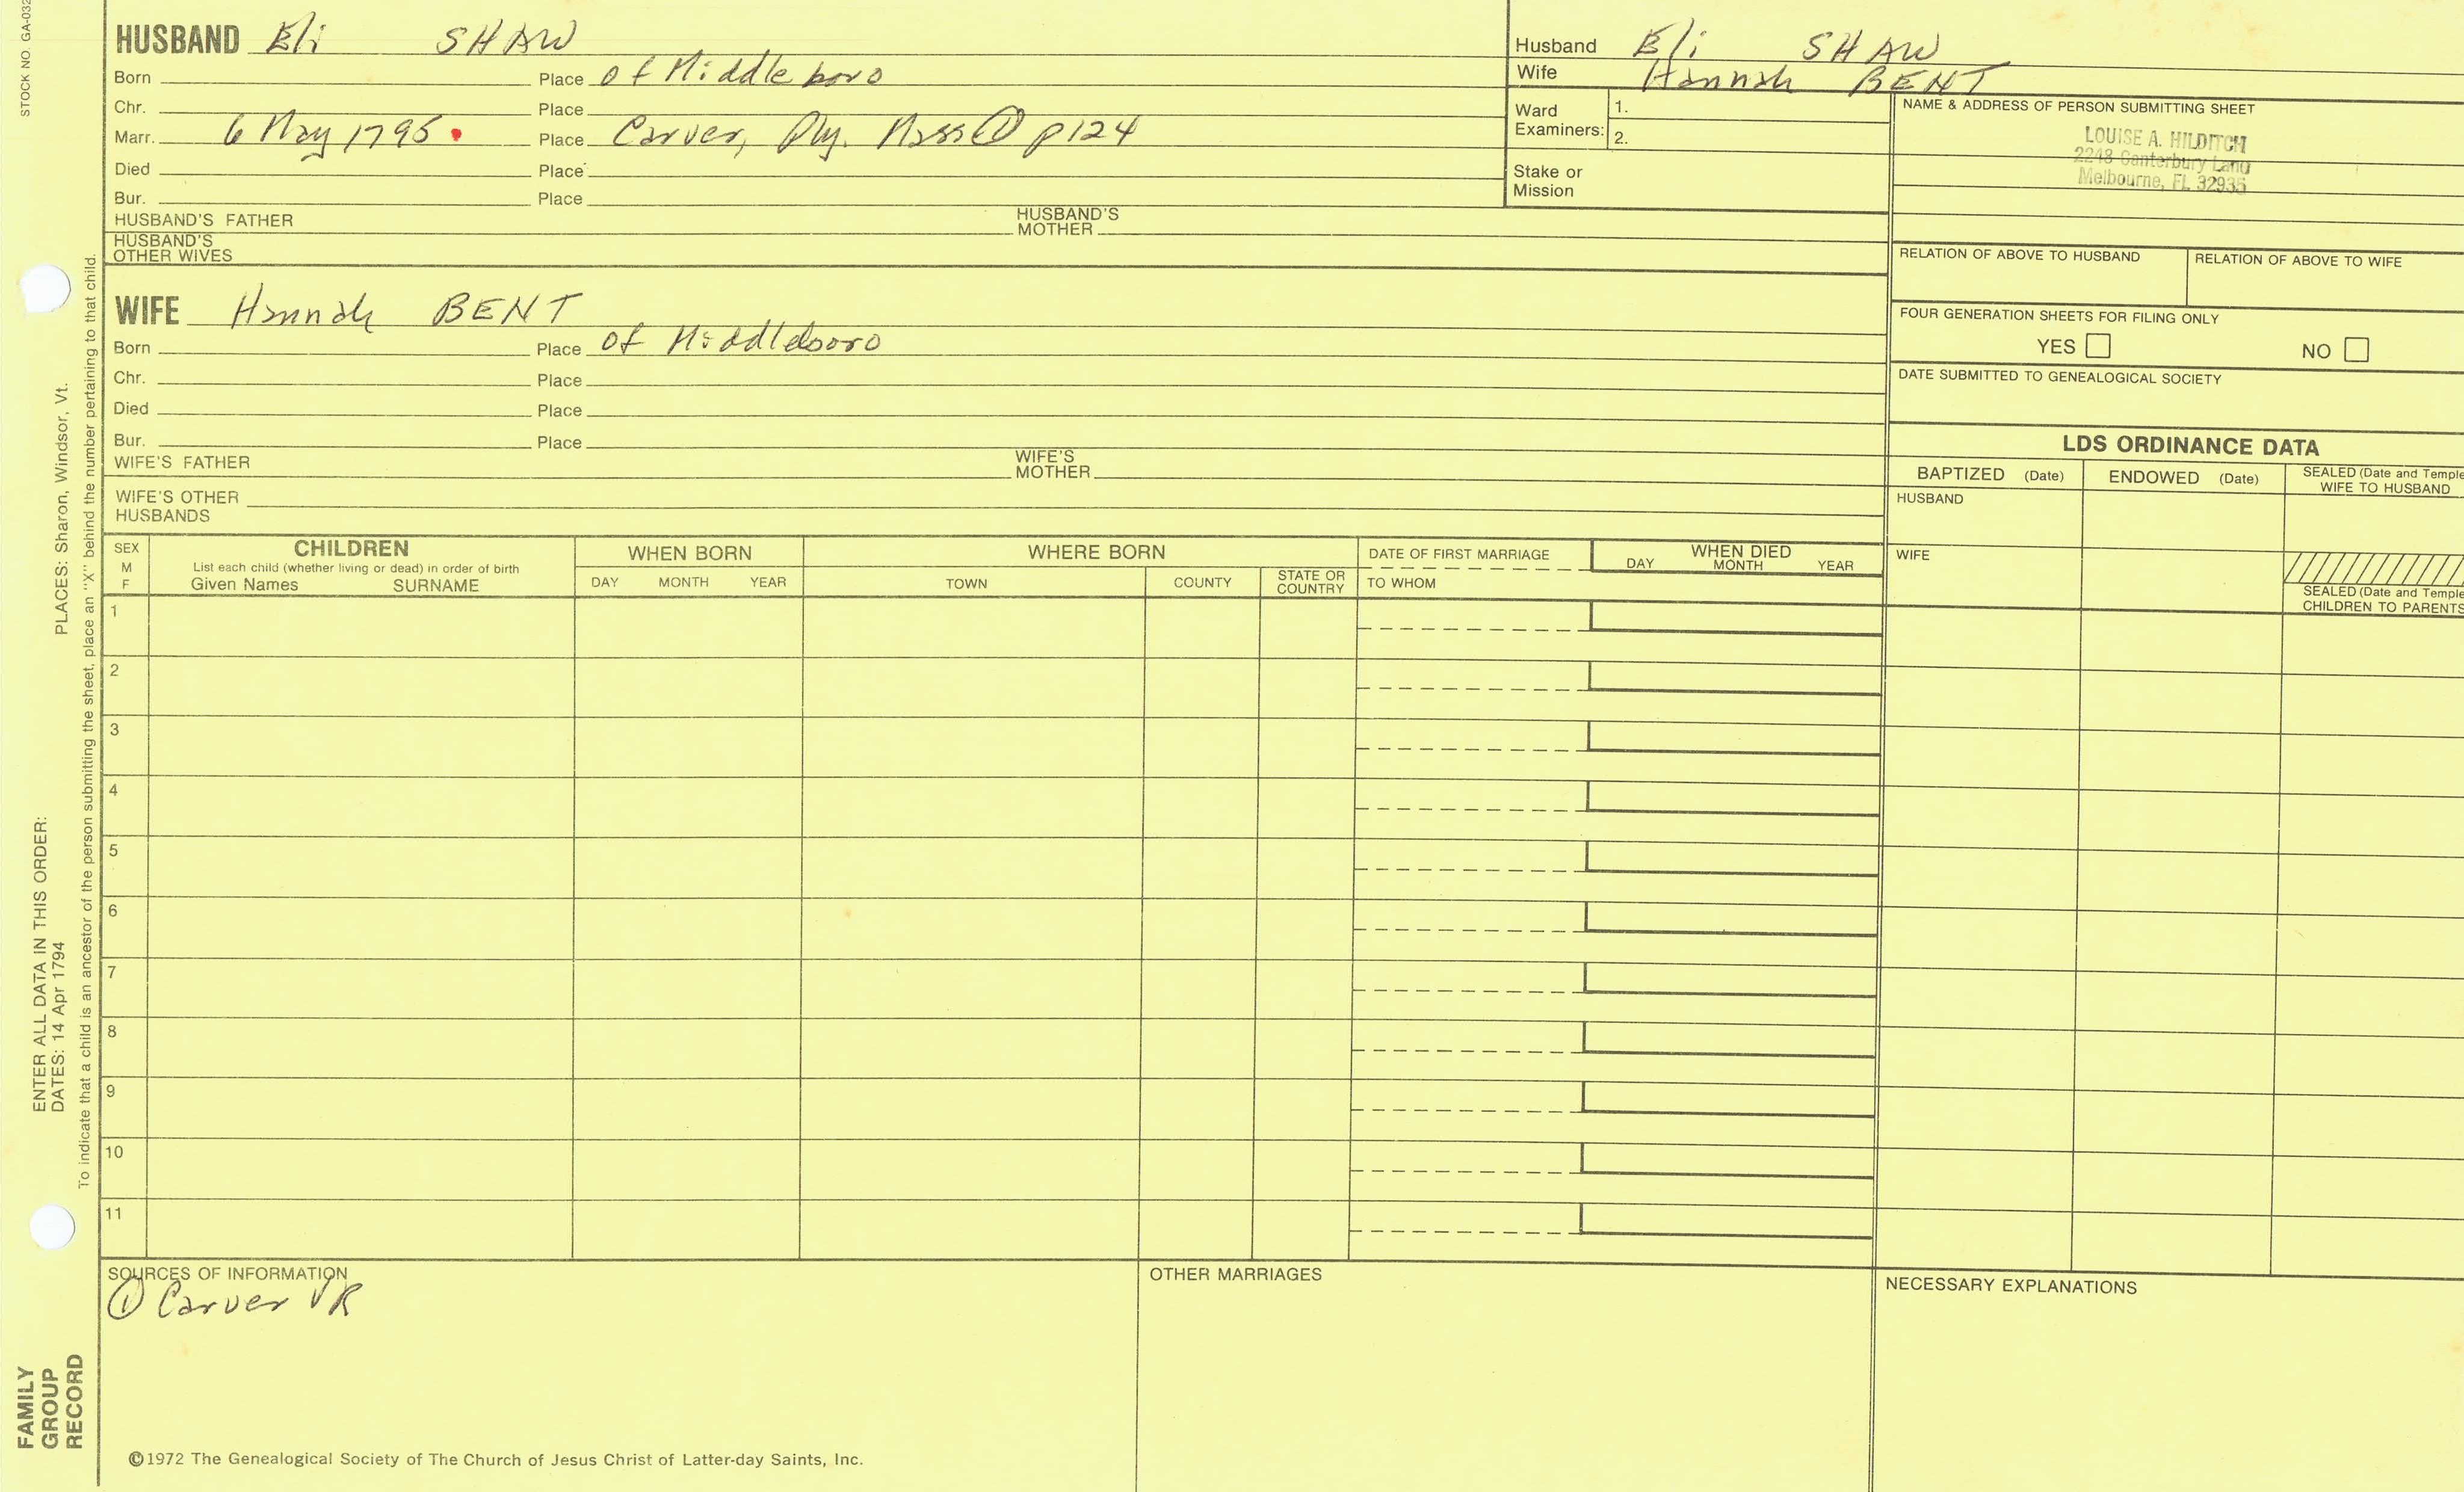 STOCK NO. GA-032
HUSBAND Eli SHAW
Born Place of Middleboro
Chr. Place
Marr. 6 May 1795 Place Carver, Ply. Mass ① p124
Died Place
Bur. Place
HUSBAND'S FATHER HUSBAND'S MOTHER
HUSBAND'S OTHER WIVES
WIFE Hannah BENT
Born Place of Middleboro
Chr. Place
Died Place
Bur. Place
WIFE'S FATHER WIFE'S MOTHER
WIFE'S OTHER HUSBANDS
Husband Eli SHAW
Wife Hannah BENT
Ward Examiners: 1.
2.
Stake or Mission
NAME & ADDRESS OF PERSON SUBMITTING SHEET
LOUISE A. HILDITCH
2248 Canterbury Lane
Melbourne, FL 32935
RELATION OF ABOVE TO HUSBAND RELATION OF ABOVE TO WIFE
FOUR GENERATION SHEETS FOR FILING ONLY
YES NO
DATE SUBMITTED TO GENEALOGICAL SOCIETY
LDS ORDINANCE DATA
BAPTIZED (Date) ENDOWED (Date) SEALED (Date and Temple
WIFE TO HUSBAND
HUSBAND
WIFE
SEALED (Date and Temple
CHILDREN TO PARENTS
SEX CHILDREN WHEN BORN WHERE BORN DATE OF FIRST MARRIAGE WHEN DIED
M List each child (whether living or dead) in order of birth DAY MONTH YEAR
F Given Names SURNAME DAY MONTH YEAR TOWN COUNTY STATE OR COUNTRY TO WHOM
1
2
3
4
5
6
7
8
9
10
11
SOURCES OF INFORMATION OTHER MARRIAGES NECESSARY EXPLANATIONS
① Carver VR
©1972 The Genealogical Society of The Church of Jesus Christ of Latter-day Saints, Inc.
FAMILY
GROUP
RECORD
ENTER ALL DATA IN THIS ORDER:
DATES: 14 Apr 1794 PLACES: Sharon, Windsor, Vt.
To indicate that a child is an ancestor of the person submitting the sheet, place an "X" behind the number pertaining to that child.